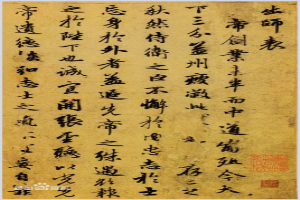 出師表
帝創業未半而中道崩殂今天
下三分益州疲敝此存亡之
秋然侍衛之臣不懈於內忠志之士
忘身於外者蓋追先帝之殊遇欲報
之於陛下也誠宜開張聖聽以光先
帝遺德恢弘志士之氣不宜妄自菲